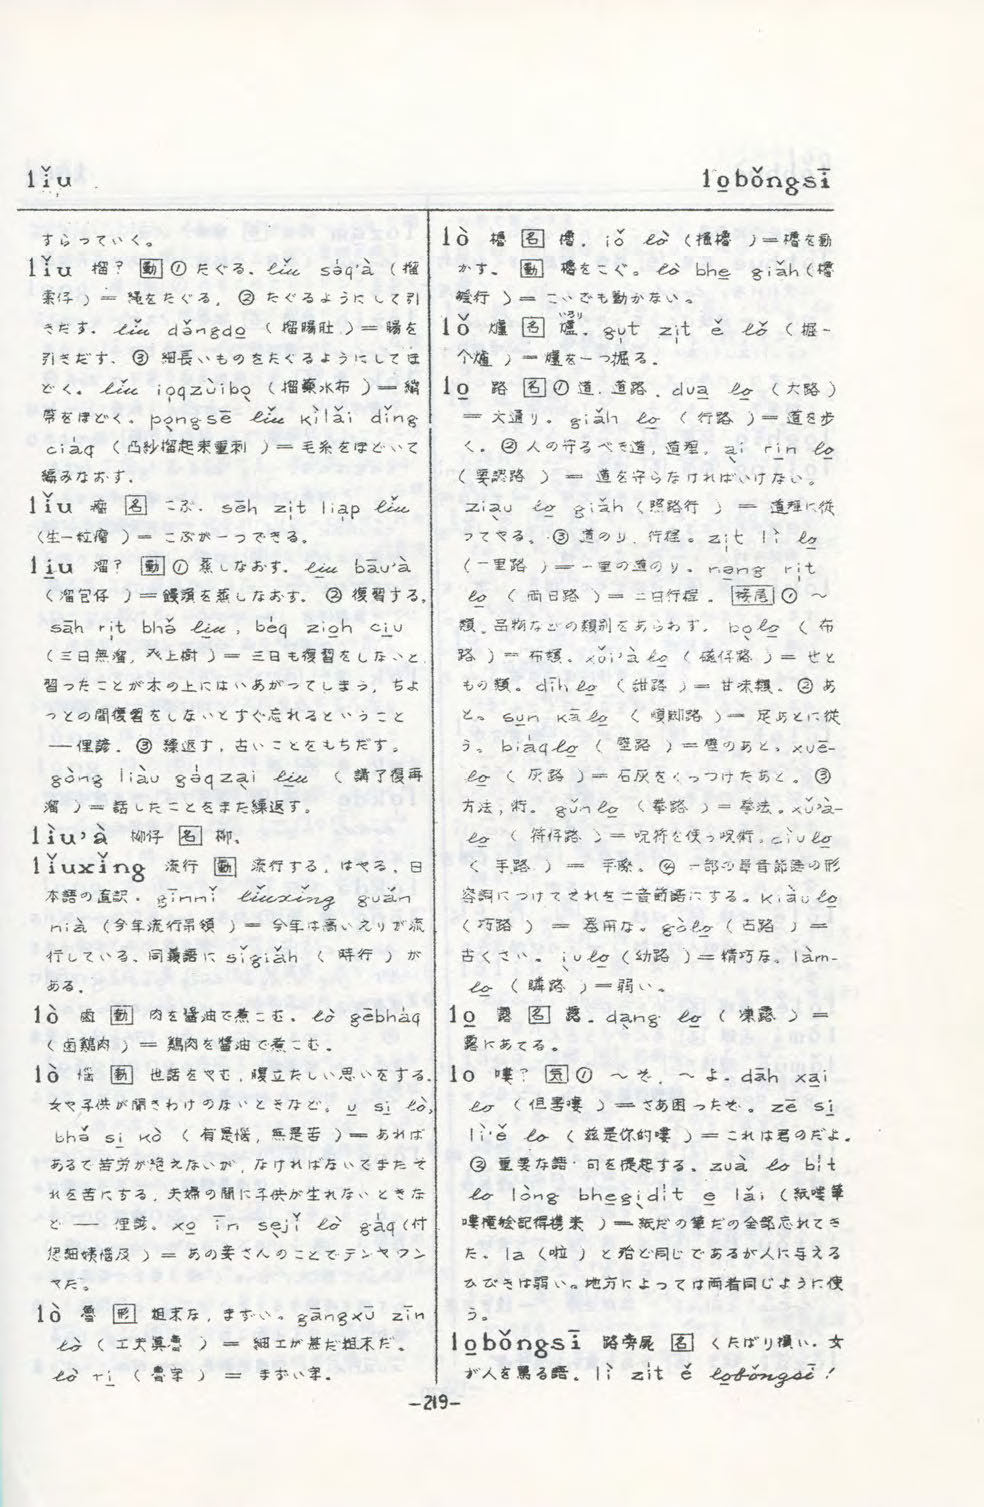 lǐu
lo̱bǒngsī
すらっていく。
lǐu 榴? 動 ① たぐる. lǐu sàq'à ( 榴
索仔 ) = 縄をたぐる, ② たぐるようにして引
きだす. lǐu dǎngdo̱ ( 榴腸肚 ) = 腸を
引きだす. ③ 細長いものをたぐるようにしてほ
どく. lǐu io̱qzùibo̱ ( 榴薬水布 ) = 繃
帯をほどく. pòngsē lǐu kìlǎi dǐng
ciàq ( 凸紗榴起来重刺 ) = 毛糸をほどいて
編みなおす.
lǐu 瘤 名 こぶ. sēh zi̍t lia̍p lǐu
(生一粒瘤 ) = こぶが一つできる.
li̱u 溜? 動 ① 蒸しなおす. li̱u bāu'à
( 溜包仔 ) = 饅頭を蒸しなおす. ② 復習する,
sāh ri̍t bhə̌ li̱u, béq zio̱h ci̱u
( 三日無溜, 上樹 ) = 三日も復習をしないと
習ったことが木の上にはいあがってしまう, ちょ
っとの間復習をしないとすぐ忘れるということ
——俚諺. ③ 繰返す, 古いことをもちだす。
gòng liàu gə̀qzai li̱u ( 講了復再
溜 ) = 話したことをまた繰返す。
lìu'à 柳仔 名 柳.
lǐuxǐng 流行 動 流行する, はやる, 日
本語の直訳. gīnnǐ lǐuxǐng guǎn
nià (今年流行吊領 ) = 今年は高いえりが流
行している, 同義語に sǐgiǎh ( 時行 ) が
ある.
lò 鹵 動 肉を醤油で煮こむ. lò gēbhàq
( 鹵鶏肉 ) = 鶏肉を醤油で煮こむ.
lò 惱 動 世話をやむ, 腹立たしい思いをする.
女や子供が聞きわけのないときなど。 u̱ si̱ lò,
bhə̌ si̱ kò ( 有是惱, 無是苦 ) = あれば
あるで苦労が絶えないが, なければないでまたそ
れを苦にする, 夫婦の間に子供が生れないときな
ど —— 俚諺. xo̱ īn sejǐ lò gàq (付
姨惱及 ) = あの妾さんのことでテンヤワン
ヤだ。
lò 魯 形 粗末な, まずい。 gāngxū zīn
lò ( 工夫真魯 ) = 細工が甚だ粗末だ.
lò ri̱ ( 魯字 ) = まずい字.
lò 櫓 名 櫓. iǒ lò (搖櫓 ) = 櫓を動
かす. 動 櫓をこぐ。 lò bhe̱ giǎh(櫓
行 ) = こいでも動かない。
lǒ 爐 名 爐(いろり). gu̍t zi̍t ě lǒ ( 掘一
个爐 ) = 爐を一つ掘る.
lo̱ 路 名 ① 道. 道路. dua̱ lo̱ ( 大路 )
= 大通り. giǎh lo̱ ( 行路 ) = 道を歩
く. ② 人の守るべき道, 道理. ai rin lo̱
( 要認路 ) = 道を守らなければいけない。
Ziau lo̱ giǎh ( 照路行 ) = 道理に従
ってやる. ③ 道のり, 行程。 zi̍t lì lo̱
( 一里路 ) = 一里の道のり. nə̱ng ri̍t
lo̱ ( 両日路 ) = 二日行程. 接尾 ① ～
類. 品物などの類別をあらわす. bolo̱ ( 布
路 ) = 布類. xǔi'à lo̱ ( 磁仔路 ) = せと
もの類. dīhlo̱ ( 甜路 ) = 甘味類. ② あ
と。 sun kālo̱ ( 脚路 ) = 足あとに従
う. biàqlo̱ ( 壁路 ) = 壁のあと. xuē-
lo̱ ( 灰路 ) = 石灰をくっつけたあと. ③
方法, 術. gǔnlo̱ ( 拳路 ) = 拳法. xǔ'à-
lo̱ ( 符仔路 ) = 呪符を使う呪術. cìulo̱
( 手路 ) = 手際. ④ 一部の単音節語の形
容詞につけてそれを二音節語にする. kiàulo̱
( 巧路 ) = 器用な. gòlo̱ ( 古路 ) =
古くさい. iulo̱ ( 幼路 ) = 精巧な. làm-
lo̱ ( 路 ) = 弱い。
lo̱ 露 名 露. dang lo̱ ( 凍露 ) =
露にあてる.
lo 嘍? 気 ① ～ぞ, ～よ. dāh xai
lo ( 但害嘍 ) = さあ困ったぞ. zē si̱
lì'ě lo ( 兹是你的嘍 ) = これは君のだよ.
② 重要な語・句を提起する. zuà lo bi̍t
lo lòng bhegidi̍t e̱ lǎi (紙嘍筆
嘍絵記得攜来 ) = 紙だの筆だの全部忘れてき
た. la (啦 ) と殆ど同じであるが人に与える
ひびきは弱い。 地方によっては両者同じように使
う。
lo̱bǒngsī 路旁屍 名 くたばり損い. 女
が人を罵る語. lì zi̍t ě lo̱bǒngsī !
—219—